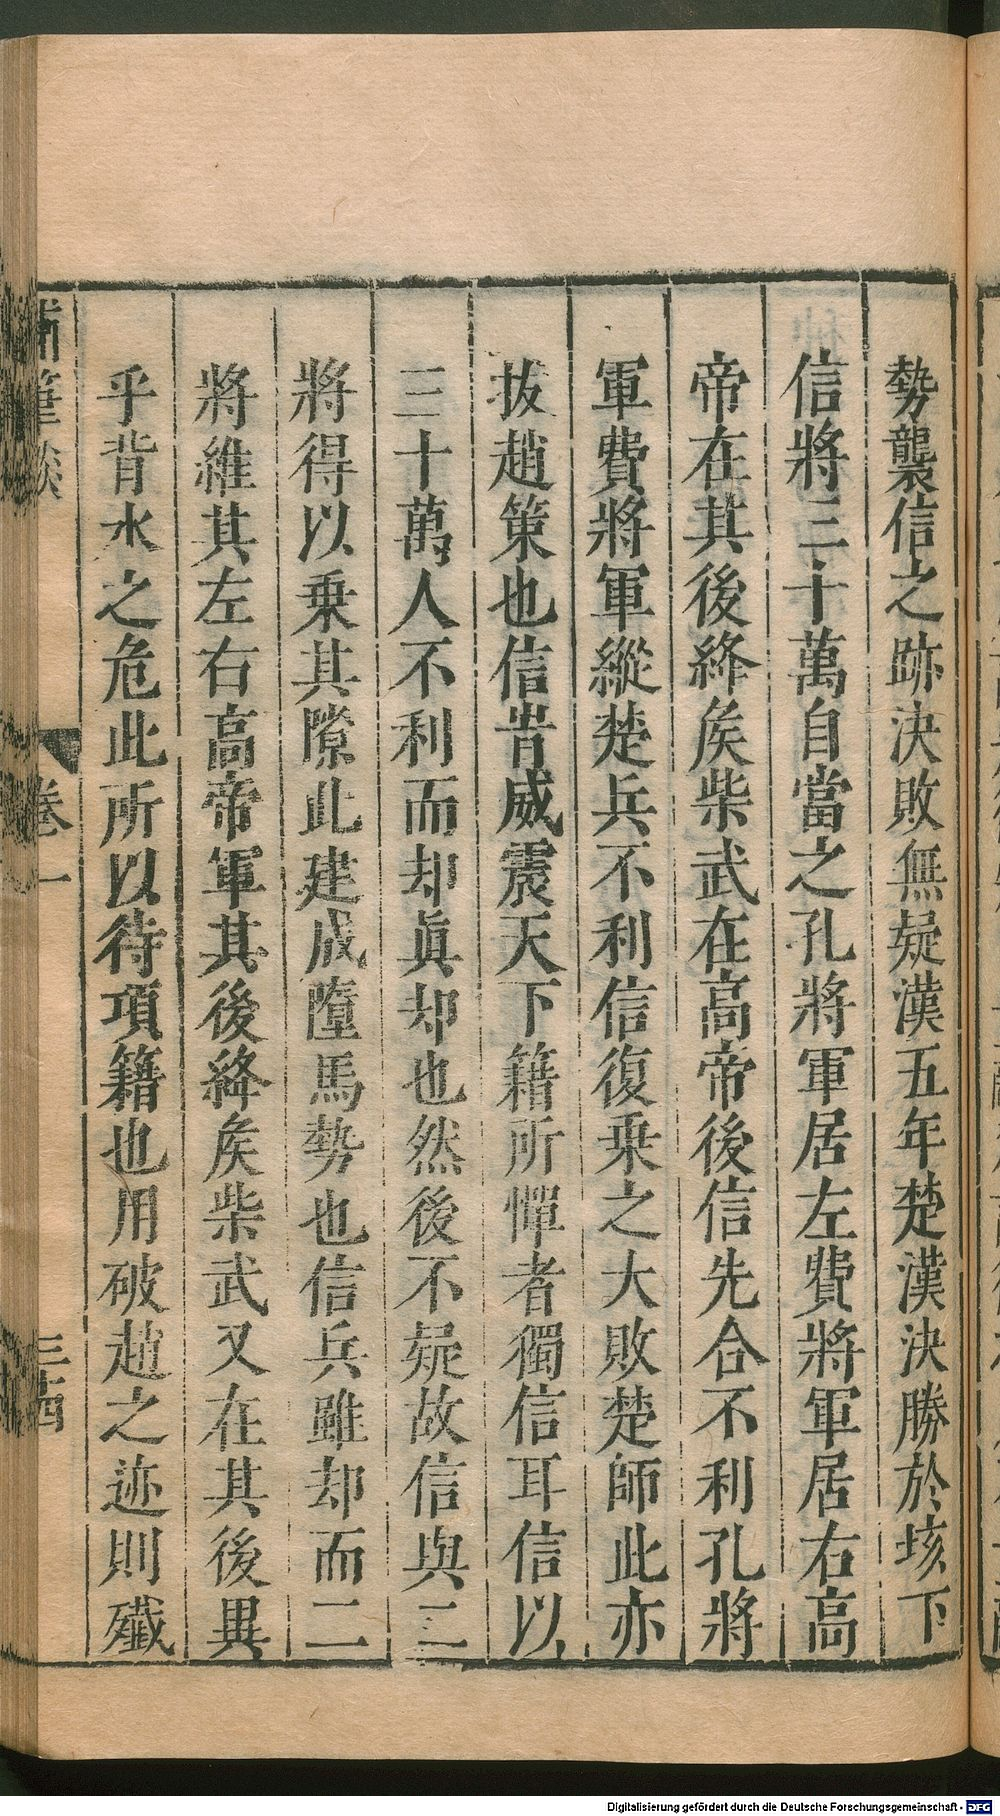 勢襲信之跡決敗無疑漢五年楚漢決勝於垓下
信將三十萬自當之孔將軍居左費將軍居右高
帝在其後絳矦柴武在高帝後信先合不利孔將
軍費將軍縱楚兵不利信復乗之大敗楚師此亦
拔趙策也信時威震天下籍所憚者獨信耳信以
三十萬人不利而却眞却也然後不疑故信與二
將得以乗其隙此建成墮馬勢也信兵雖却而二
將維其左右高帝軍其後絳矦柴武又在其後異
乎背水之危此所以待項籍也用破趙之迹則殲
補筆談 卷一 三十四
Digitalisierung gefördert durch die Deutsche Forschungsgemeinschaft - DFG